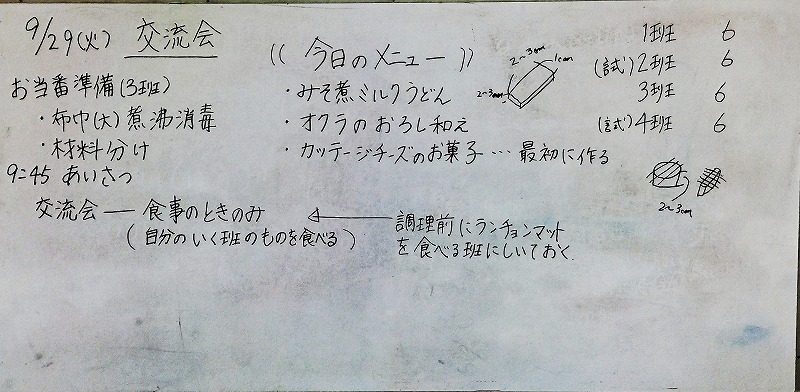 9/29(火) 交流会
お当番準備(3班)
・布巾(大)煮沸消毒
・材料分け
9:45 あいさつ
交流会 ― 食事のときのみ
(自分のいく班のものを食べる)
調理前にランチョンマット
を食べる班にしいておく
((今日のメニュー))
・みそ煮ミルクうどん
・オクラのおろし和え
・カッテージチーズのお菓子…最初に作る
2~3cm
1cm
2~3cm
1班 6
(試)2班 6
3班 6
(試)4班 6
2~3cm